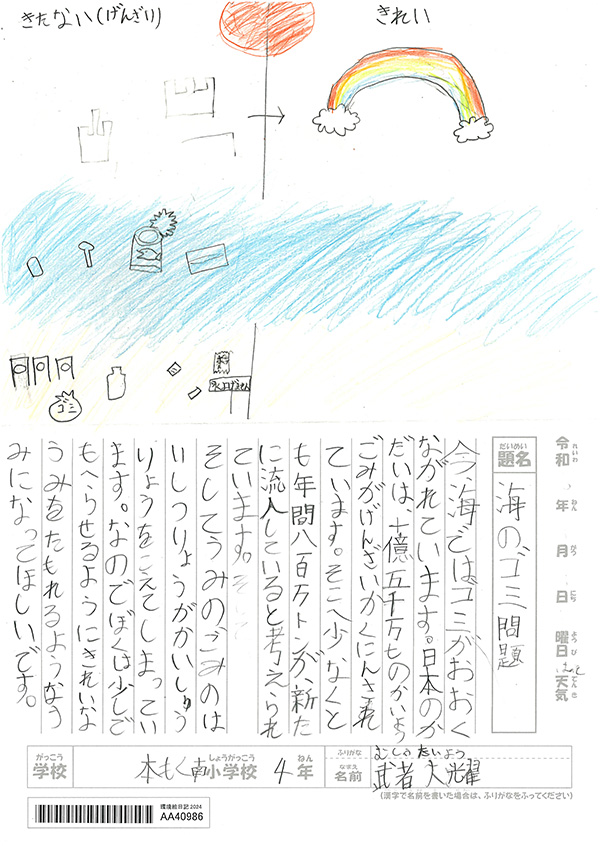 きたない(げんざい)
きれい
ゴミ
水上げません
令和 年 月 日 曜日 天気
れいわ ねん がつ にち ようび てんき
だいめい
題名
海のゴミ問題
今海ではゴミがおおく
ながれています。日本のか
だいは、一億五千万ものかいよう
ごみがげんざいかくにんされ
ています。そこへ少なくと
も年間八百万トンが、新た
に流入していると考えられ
ています。
そしてうみのごみのは
いしつりょうがかいしゅう
りょうをこえてしまってい
ます。なのでぼくは少しで
もへらせるようにきれいな
うみをたもれるようなう
みになってほしいです。
がっこう
学校
本もく南小学校 4年
しょうがっこう ねん
ふりがな
むしゃ たいよう
なまえ
名前
武者 大耀
(漢字で名前を書いた場合は、ふりがなをふってください)
環境絵日記2024
AA40986